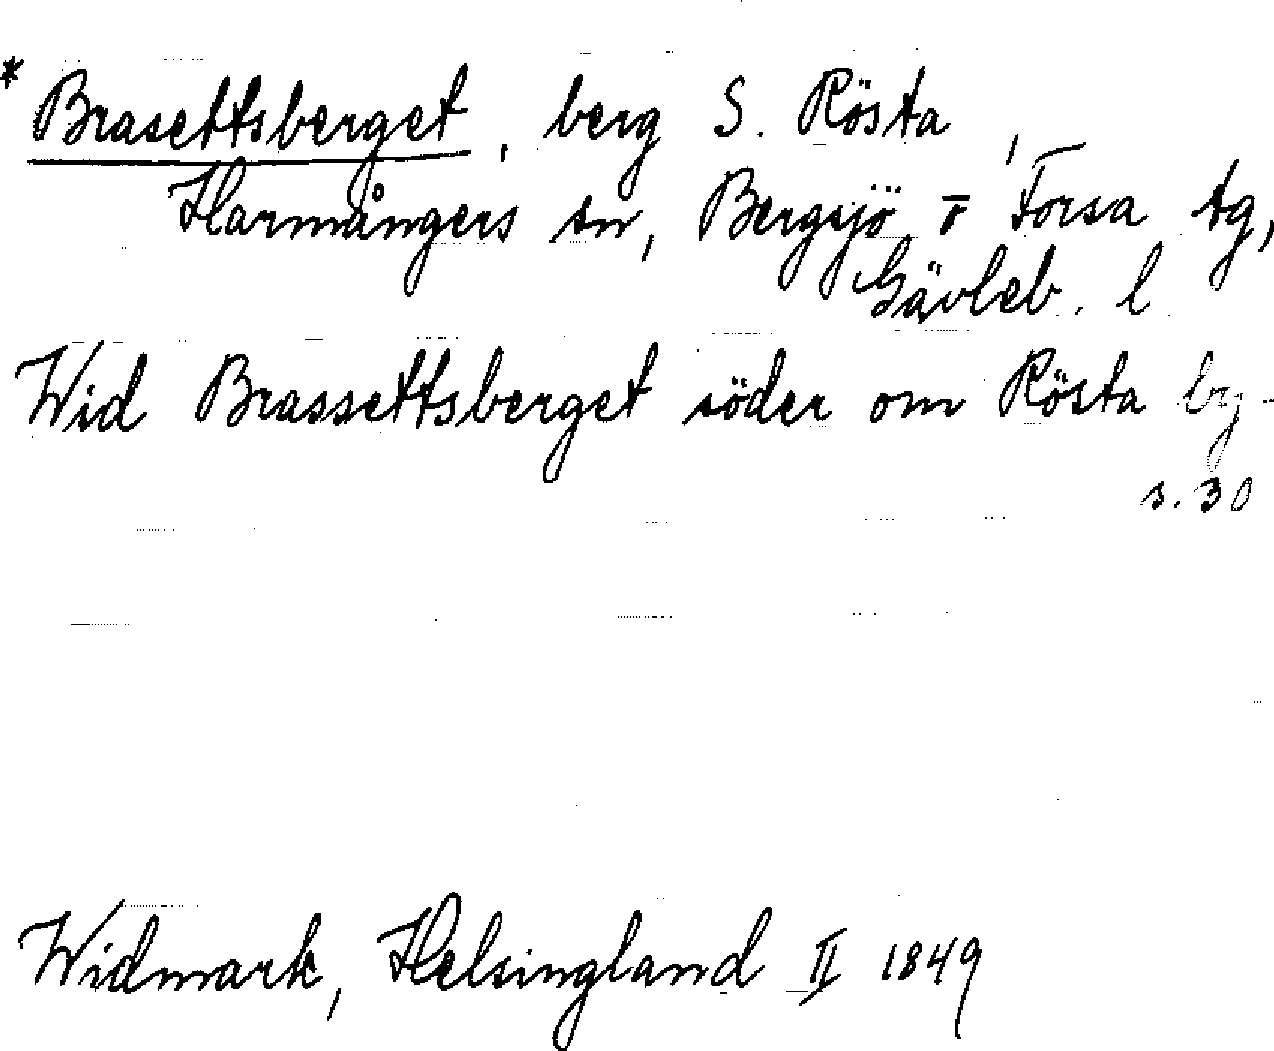 * Brasettsberget, berg S. Rösta,
Harmångers sn, Bergsjö o Forsa tg,
Gävleb. l
Wid Brassettsberget söder om Rösta by -
s. 30
Widmark, Helsingland II 1849